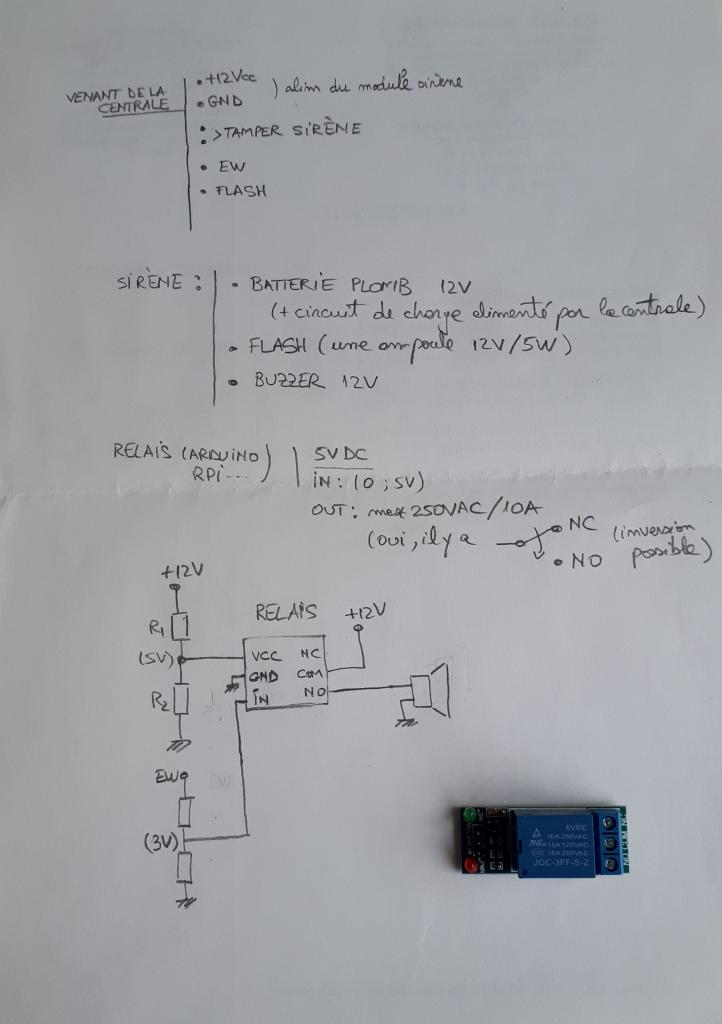 VENANT DE LA
CENTRALE
• +12Vcc
• GND
) alim du module sirène
: > TAMPER SIRÈNE
• EW
• FLASH
SIRÈNE :
• BATTERIE PLOMB 12V
(+ circuit de charge alimenté par la centrale)
• FLASH (une ampoule 12V/5W)
• BUZZER 12V
RELAIS (ARDUINO)
RPi...
5V DC
IN : (0 ; 5V)
OUT : max 250VAC/10A
(oui, il y a
NC
NO
(inversion
possible)
+12V
R1
(5V)
R2
RELAIS
VCC NC
GND COM
IN NO
+12V
EW
(3V)
5VDC
10A 250VAC
15A 125VAC
10A 250VAC
JQC-3FF-S-Z
NO COM NC